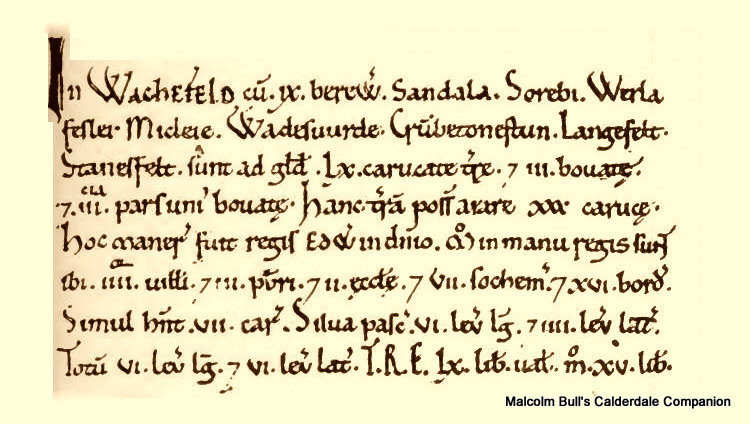 In WACHEFELD cū. ix. berew̄. Sandala. Sorebi. Werla
fesler Micleie. Wadesuurde. Crūbetonestun. Langefelt.
Stanesfelt. sunt ad gld̄. Lx. carucate trę. 7 iii. bouatę.
7. iii. pars uni' bouatę. Hanc trā poss̄ arare xxx carucę.
Hoc maner' fuit regis EDW in dn̄io. m̊ in manu regis sunt
ibi. iiii. uilli. 7 iii. pb̄ri. 7 ii. ęccłę. 7 vii. sochem'. 7 xvi. bord'.
Simul hn̄t. vii. car'. Silua past'. vi. leu' lḡ. 7 iiii. leu' lat'.
Totū vi. leu' lḡ. 7 vi. leu' lat'. T.R.E. Lx. lib. ual'. m̊. xv. lib.
Malcolm Bull's Calderdale Companion